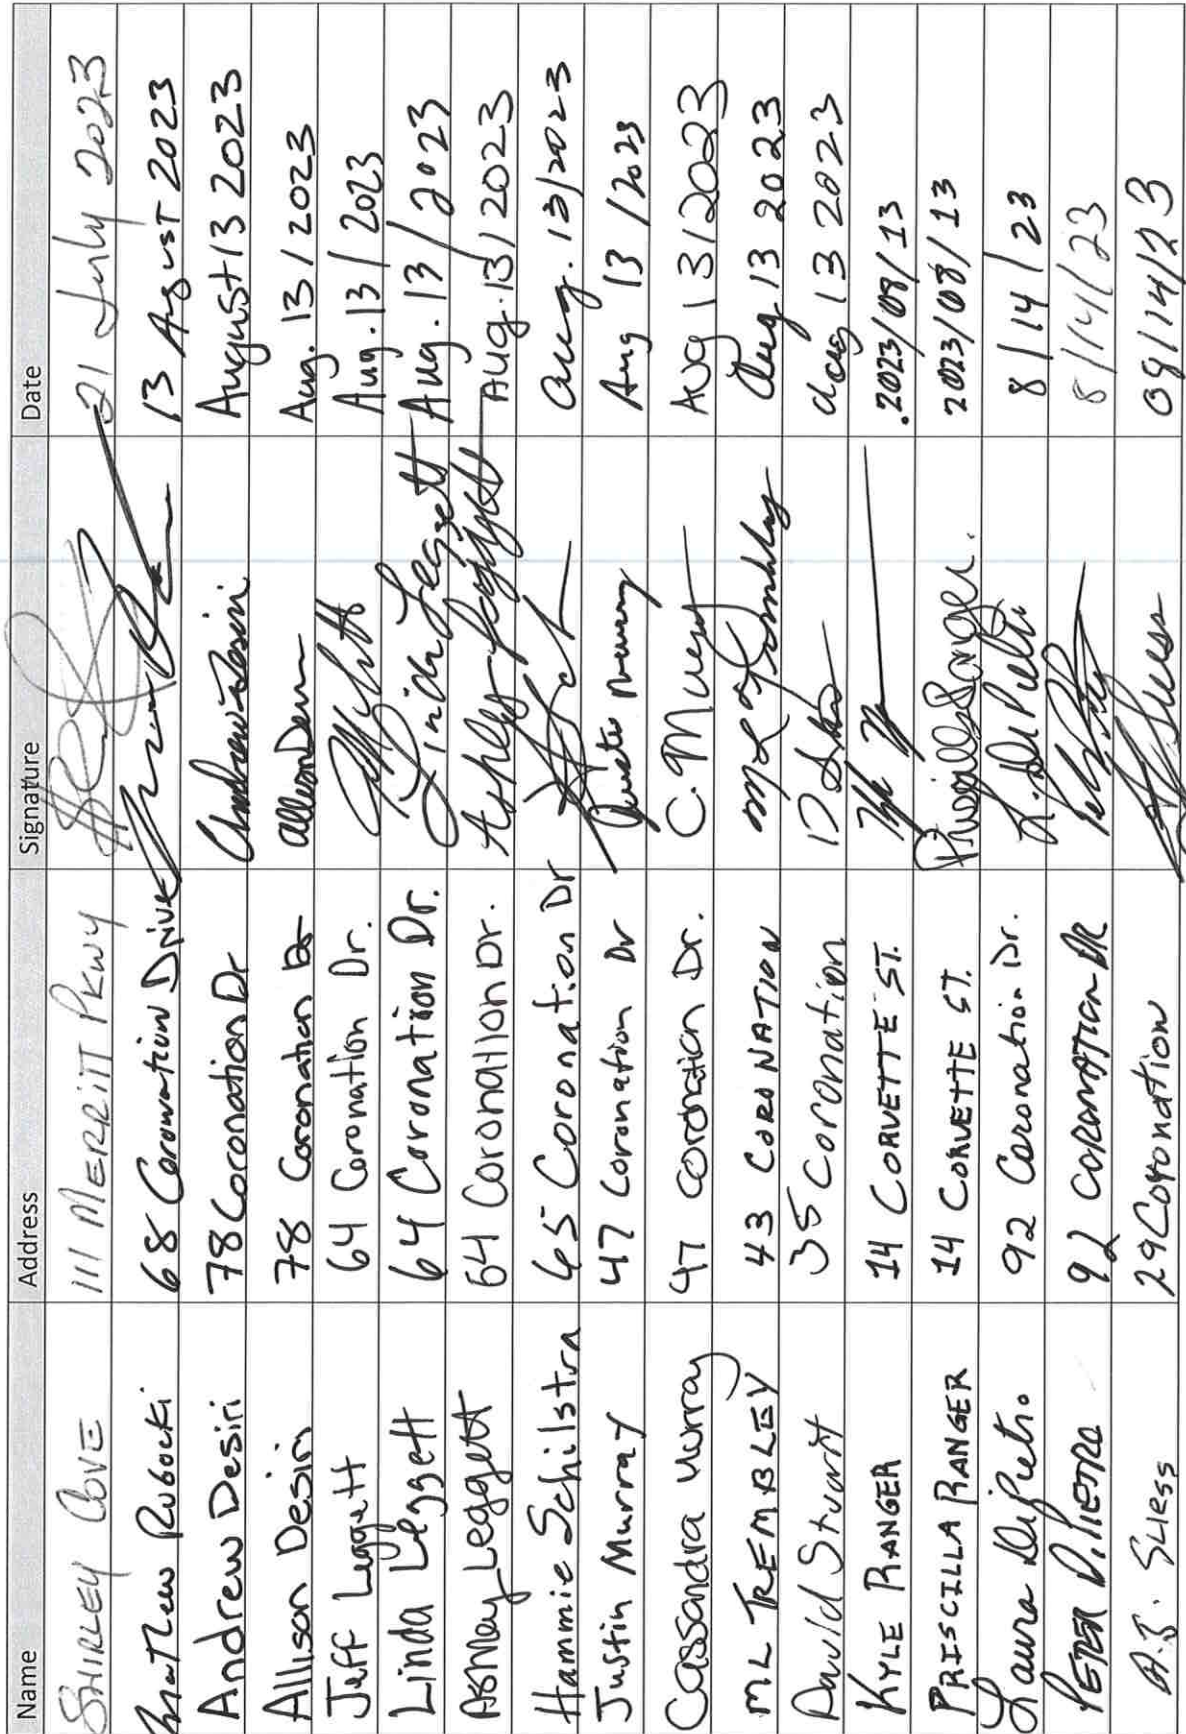 Name Address Signature Date
SHIRLEY COVE 111 MERRITT PKWY 21 July 2023
Mathew Rubocki 68 Coronation Drive 13 August 2023
Andrew Desiri 78 Coronation Dr Andrew Desiri August 13 2023
Allison Desiri 78 Coronation Dr Aug. 13/2023
Jeff Leggett 64 Coronation Dr. Aug. 13/2023
Linda Leggett 64 Coronation Dr. Linda Leggett Aug. 13/2023
Ashley Leggett 64 Coronation Dr. Ashley Leggett Aug. 13/2023
Hammie Schilstra 65 Coronation Dr Aug. 13/2023
Justin Murray 47 Coronation Dr Justin Murray Aug 13/2023
Cassandra Murray 47 Coronation Dr. C. Murray Aug 13/2023
ML TREMBLEY 43 CORONATION Aug 13 2023
David Stuart 35 Coronation Aug 13 2023
KYLE RANGER 14 CORVETTE ST. 2023/08/13
PRISCILLA RANGER 14 CORVETTE ST. Priscilla Ranger. 2023/08/13
Laura DiPietro 92 Coronation Dr. L. DiPietro 8/14/23
PETER DiPIETRO 92 CORONATION DR 8/14/23
A.J. Suess 29 Coronation 08/14/23